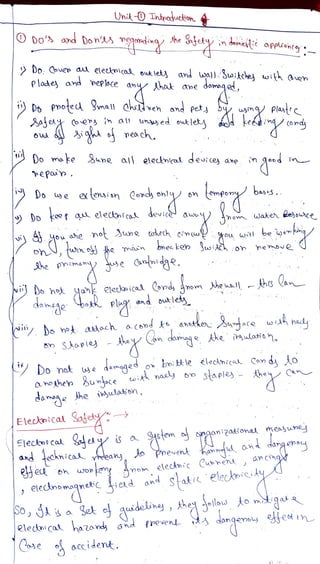 Unit-① Introduction
① DO's and Don'ts regarding the Safety in domestic appliances:-
i) Do Cover all electrical outlets and wall Switches with
Plates and replace any that are damaged.
ii) Do protect Small Children and pets by using plastic
Safety covers in all unused outlets and keeping cords
out of sight of reach.
iii) Do make Sure all electrical devices are in good in
repair.
iv) Do use extension Cords only on tempory basis..
v) Do keep all electrical device away from water
vi) If you are not Sure which circuit you will be working
on, turn off the main breaker Switch on remove
the primary fuse Cartridge.
vii) Do not yank electrical Cords from the wall - this Can
damage both plugs and outlets.
viii) Do not attach a cord to another Surface with nails
on staples - they Can damage the insulation.
ix) Do not use damaged or brittle electrical cords to
another Surface with nails on staples - they Can
damage the insulation.
Electrical Safety:→
Electrical Safety is a System of organizational measures
and technical means, to prevent harmful and dangerous
effect on workers from electric Current,
, electromagnetic field and static electricity
So, It is a Set of guidelines, they follow to mitigate
electrical hazards and prevent its dangerous effect in
Case of accident.